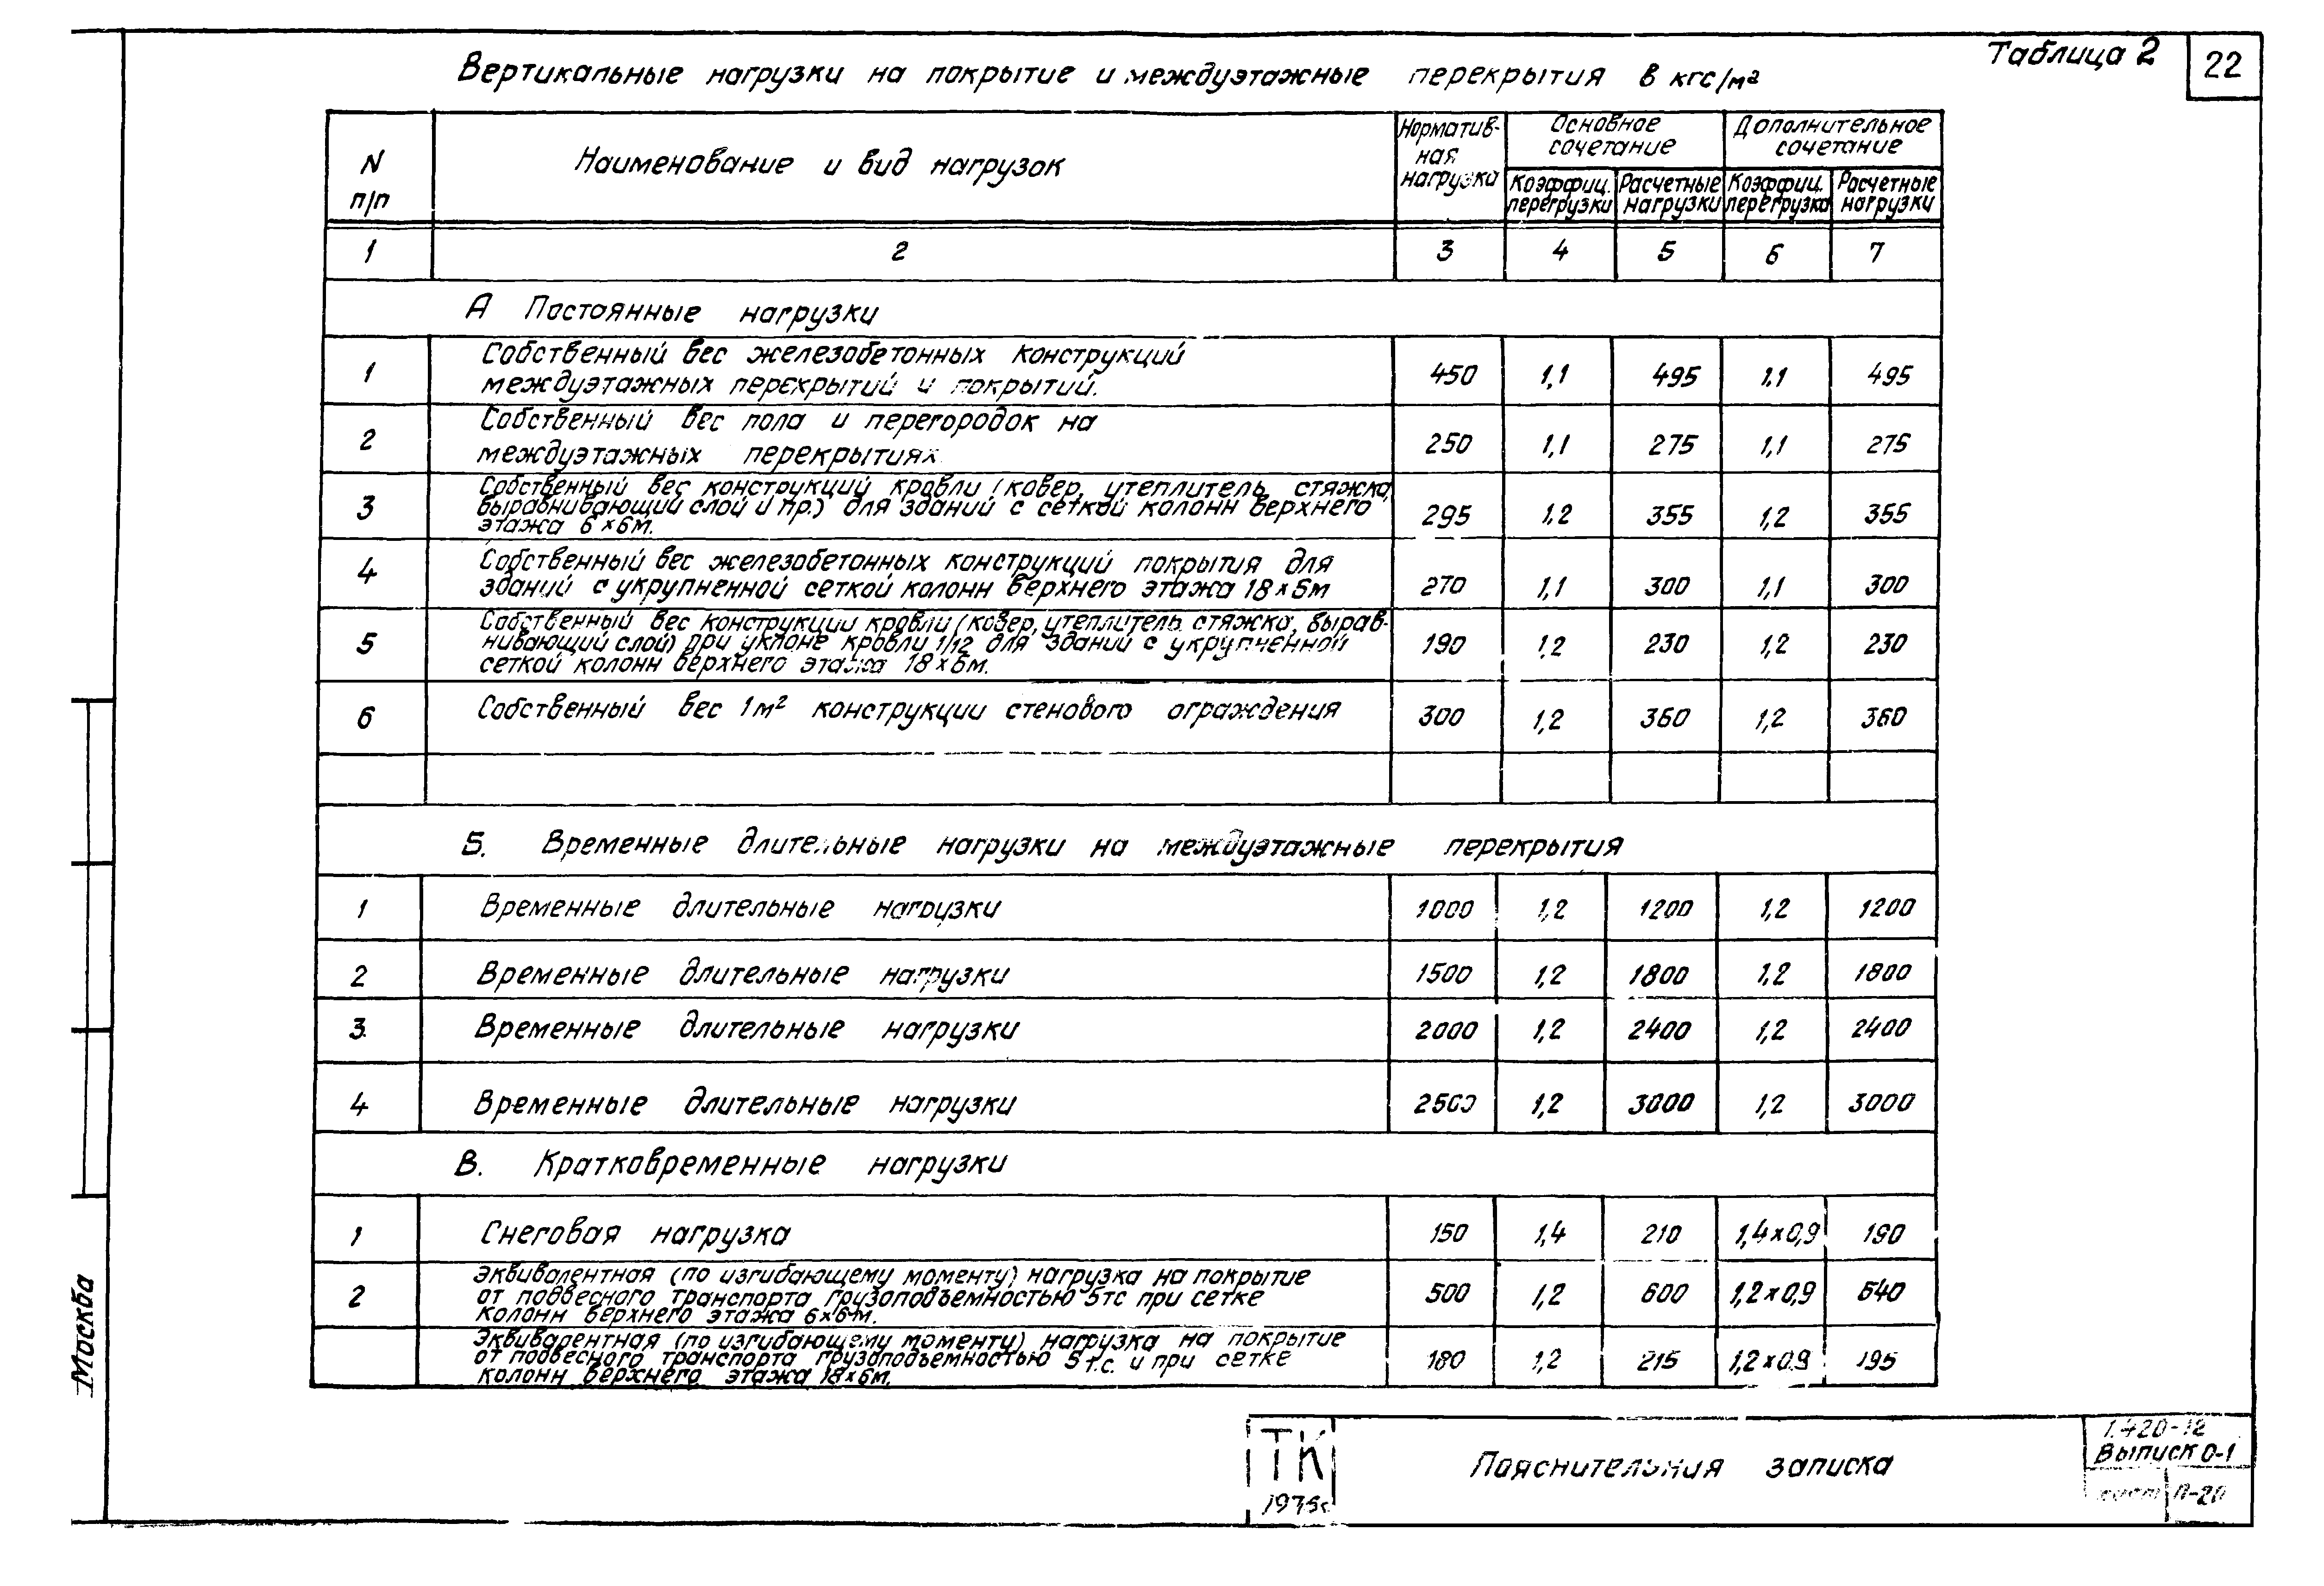 Таблица 2
22
Вертикальные нагрузки на покрытие и междуэтажные перекрытия в кгс/м²
N п/п
Наименование и вид нагрузок
Норматив-
ная
нагрузка
Основное
сочетание
Дополнительное
сочетание
Коэффиц.
перегрузки
Расчетные
нагрузки
Коэффиц.
перегрузка
Расчетные
нагрузки
1 2 3 4 5 6 7
А Постоянные нагрузки
1 Собственный вес железобетонных конструкций
междуэтажных перекрытий и покрытий. 450 1,1 495 1,1 495
2 Собственный вес пола и перегородок на
междуэтажных перекрытиях 250 1,1 275 1,1 275
3 Собственный вес конструкций кровли (ковер, утеплитель, стяжка,
выравнивающий слой и пр.) для зданий с сеткой колонн верхнего
этажа 6×6м. 295 1,2 355 1,2 355
4 Собственный вес железобетонных конструкций покрытия для
зданий с укрупненной сеткой колонн верхнего этажа 18×6м 270 1,1 300 1,1 300
5 Собственный вес конструкции кровли (ковер, утеплитель, стяжка, вырав-
нивающий слой) при уклоне кровли 1/12 для зданий с укрупненной
сеткой колонн верхнего этажа 18×6м. 190 1,2 230 1,2 230
6 Собственный вес 1м² конструкции стенового ограждения 300 1,2 360 1,2 360
Б. Временные длительные нагрузки на междуэтажные перекрытия
1 Временные длительные нагрузки 1000 1,2 1200 1,2 1200
2 Временные длительные нагрузки 1500 1,2 1800 1,2 1800
3. Временные длительные нагрузки 2000 1,2 2400 1,2 2400
4 Временные длительные нагрузки 2500 1,2 3000 1,2 3000
В. Кратковременные нагрузки
1 Снеговая нагрузка 150 1,4 210 1,4×0,9 190
2 Эквивалентная (по изгибающему моменту) нагрузка на покрытие
от подвесного транспорта грузоподъемностью 5тс при сетке
колонн верхнего этажа 6×6м. 500 1,2 600 1,2×0,9 540
Эквивалентная (по изгибающему моменту) нагрузка на покрытие
от подвесного транспорта грузоподъемностью 5т.с. и при сетке
колонн верхнего этажа 18×6м. 180 1,2 215 1,2×0,9 195
Москва
ТК
1975г.
Пояснительная записка
1.420-12
Выпуск 0-1
лист П-20